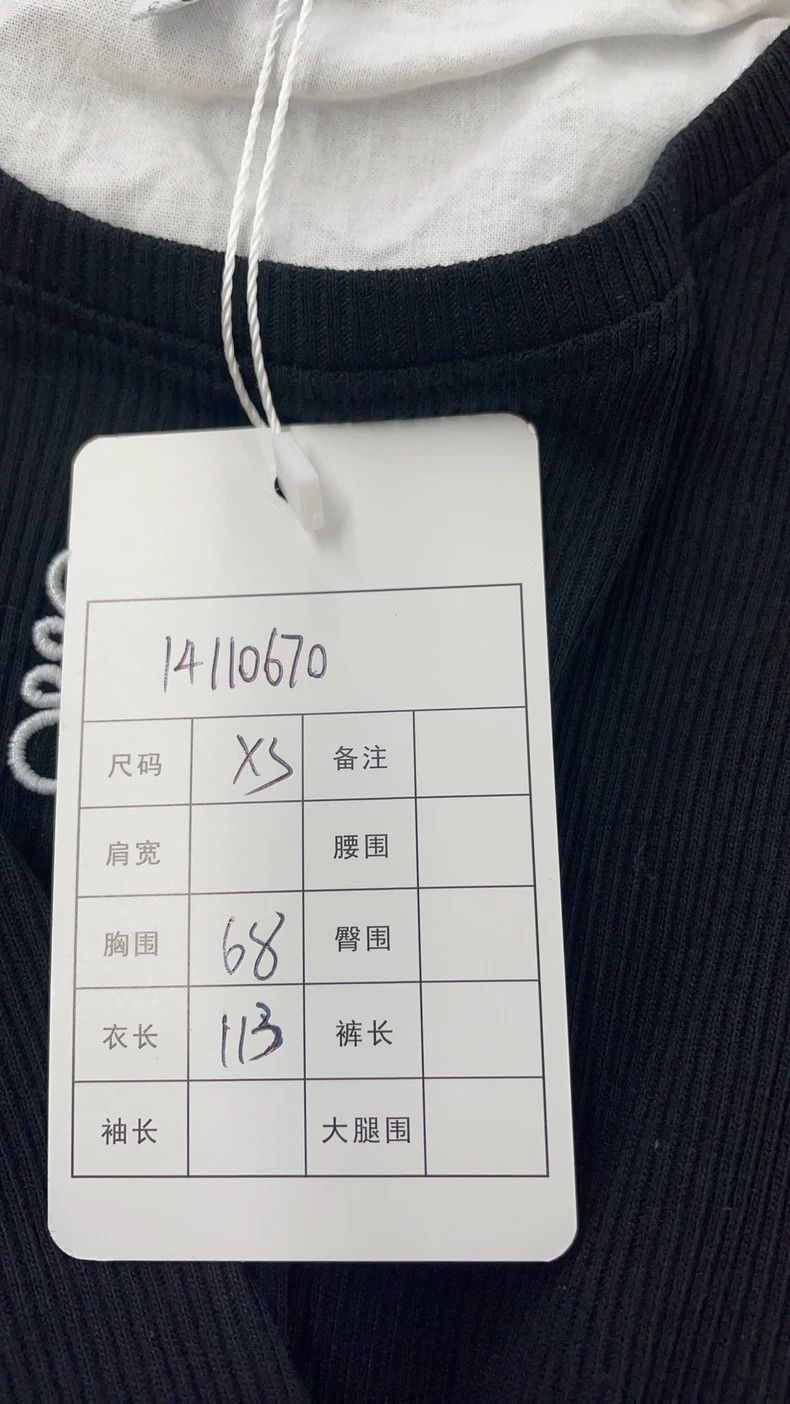 14110670
尺码 XS 备注
肩宽 腰围
胸围 68 臀围
衣长 113 裤长
袖长 大腿围